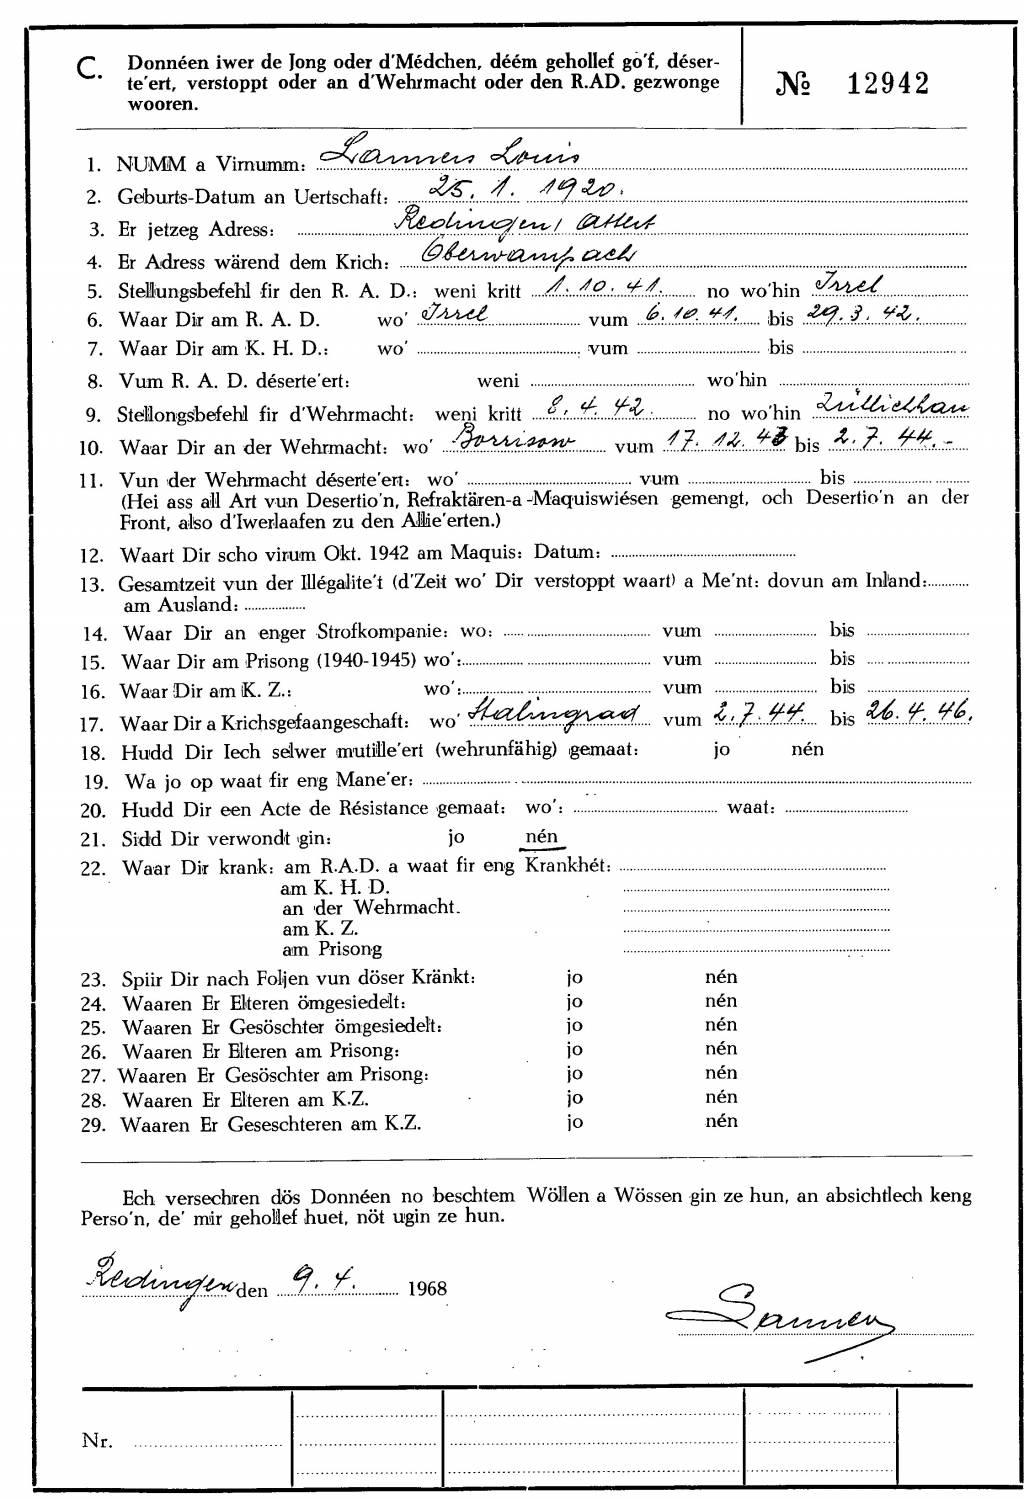 C. Donnéen iwer de Jong oder d'Médchen, déém gehollef go'f, déser-
te'ert, verstoppt oder an d'Wehrmacht oder den R.AD. gezwonge
wooren.
№ 12942
1. NUMM a Virnumm: Lanners Louis
2. Geburts-Datum an Uertschaft: 25. 1. 1920.
3. Er jetzeg Adress: Redingen/Attert
4. Er Adress wärend dem Krich: Oberwampach
5. Stellungsbefehl fir den R. A. D.: weni kritt 1.10.41. no wo'hin Irrel
6. Waar Dir am R. A. D. wo' Irrel vum 6.10.41. bis 29.3.42.
7. Waar Dir am K. H. D.: wo' vum bis
8. Vum R. A. D. déserte'ert: weni wo'hin
9. Stellongsbefehl fir d'Wehrmacht: weni kritt 8.4.42. no wo'hin Züllichau
10. Waar Dir an der Wehrmacht: wo' Borrisow vum 17.12.43 bis 2.7.44.-
11. Vun der Wehrmacht déserte'ert: wo' vum bis
(Hei ass all Art vun Desertio'n, Refraktären-a -Maquiswiésen gemengt, och Desertio'n an der
Front, also d'Iwerlaafen zu den Allie'erten.)
12. Waart Dir scho virum Okt. 1942 am Maquis: Datum:
13. Gesamtzeit vun der Illégalite't (d'Zeit wo' Dir verstoppt waart) a Me'nt: dovun am Inland:
am Ausland:
14. Waar Dir an enger Strofkompanie: wo: vum bis
15. Waar Dir am Prisong (1940-1945) wo': vum bis
16. Waar Dir am K. Z.: wo': vum bis
17. Waar Dir a Krichsgefaangeschaft: wo' Stalingrad vum 2.7.44. bis 26.4.46.
18. Hudd Dir Iech selwer mutille'ert (wehrunfähig) gemaat: jo nén
19. Wa jo op waat fir eng Mane'er:
20. Hudd Dir een Acte de Résistance gemaat: wo': waat:
21. Sidd Dir verwondt gin: jo nén
22. Waar Dir krank: am R.A.D. a waat fir eng Krankhét:
am K. H. D.
an der Wehrmacht.
am K. Z.
am Prisong
23. Spiir Dir nach Foljen vun döser Kränkt: jo nén
24. Waaren Er Elteren ömgesiedelt: jo nén
25. Waaren Er Gesöschter ömgesiedelt: jo nén
26. Waaren Er Elteren am Prisong: jo nén
27. Waaren Er Gesöschter am Prisong: jo nén
28. Waaren Er Elteren am K.Z. jo nén
29. Waaren Er Geseschteren am K.Z. jo nén
Ech versechren dös Donnéen no beschtem Wöllen a Wössen gin ze hun, an absichtlech keng
Perso'n, de' mir gehollef huet, nöt ugin ze hun.
Redingen den 9. 4. 1968
Lanners
Nr.